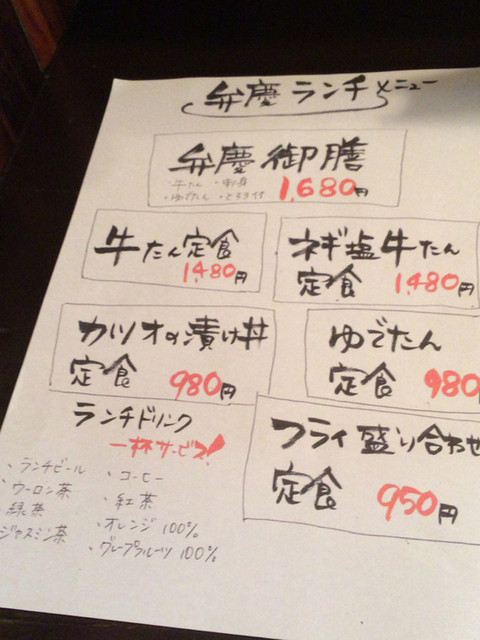 弁慶ランチメニュー
弁慶御膳
・牛たん ・刺身
・ゆでたん ・とろろ付
1,680円
牛たん定食
1,480円
ネギ塩牛たん
定食 1,480円
カツオの漬け丼
定食 980円
ゆでたん
定食 980
フライ盛り合わせ
定食 950円
ランチドリンク
一杯サービス!
・ランチビール
・ウーロン茶
・緑茶
ジャスミン茶
・コーヒー
・紅茶
・オレンジ 100%
・グレープフルーツ 100%